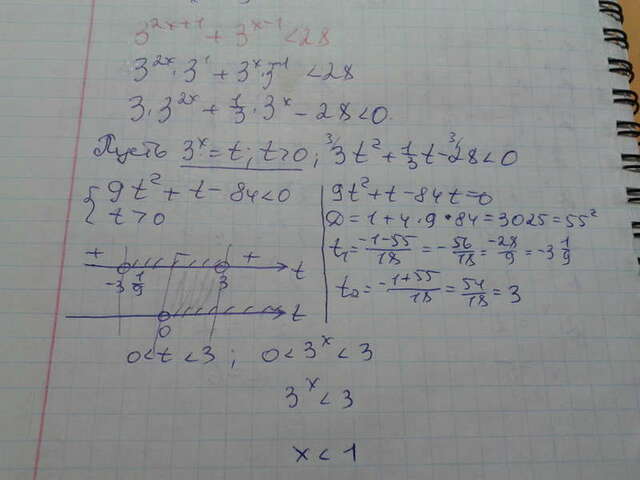 3^{2x+1} + 3^{x-1} < 28
3^{2x} · 3^1 + 3^x · 3^{-1} < 28
3 · 3^{2x} + 1/3 · 3^x - 28 < 0.
Пусть 3^x = t; t > 0; ^{3/}3t^2 + 1/3 t - ^{3/}28 < 0
{ 9t^2 + t - 84 < 0
t > 0
+ - + t
-3 1/9 3
t
0
9t^2 + t - 84t = 0
D = 1 + 4 · 9 · 84 = 3025 = 55^2
t_1 = (-1-55)/18 = -56/18 = -28/9 = -3 1/9
t_2 = (-1+55)/18 = 54/18 = 3
0 < t < 3 ; 0 < 3^x < 3
3^x < 3
x < 1